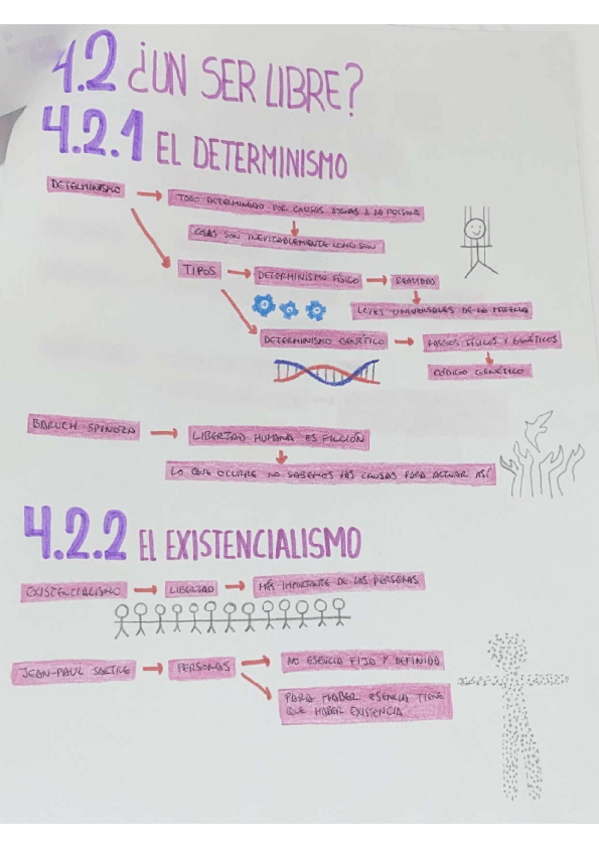 4.2 ¿UN SER LIBRE?
4.2.1 EL DETERMINISMO
DETERMINISMO
TODO DETERMINADO POR CAUSAS AJENAS A LA PERSONA
COSAS SON INEVITABLEMENTE COMO SON
TIPOS
DETERMINISMO FÍSICO
REALIDAD
LEYES UNIVERSALES DE LA MATERIA
DETERMINISMO GENÉTICO
RASGOS FÍSICOS Y GENÉTICOS
CÓDIGO GENÉTICO
BARUCH SPINOZA
LIBERTAD HUMANA ES FICCIÓN
LO QUE OCURRE NO SABEMOS LAS CAUSAS PARA ACTUAR ASÍ
4.2.2 EL EXISTENCIALISMO
EXISTENCIALISMO
LIBERTAD
MÁS IMPORTANTE DE LAS PERSONAS
JEAN-PAUL SARTRE
PERSONAS
NO ESENCIA FIJA Y DEFINIDA
PARA HABER ESENCIA TIENE
QUE HABER EXISTENCIA